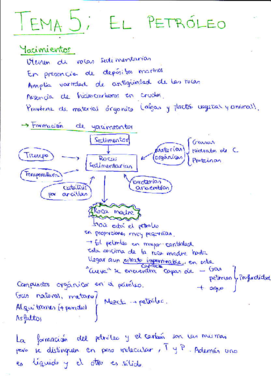 TEMA 5: EL PETRÓLEO
Yacimientos
Vienen de rocas sedimentarias
En presencia de depósitos marinos
Amplia variedad de antigüedad de las rocas
Ausencia de hidrocarburo en crudon.
Proviene de material orgánico (algas y restos vegetal y animal).
→ Formación de yacimientos
Sedimentos
Tiempo
Rocas sedimentarias
materias orgánicas
Grasas
hidratos de C
Proteínas
Temperatura
catálisis por arcillas
bacterias anaerobias
Roca madre
Aquí está el petróleo
en proporciones muy pequeñas.
→ El petróleo en mayor cantidad
está encima de la roca madre hasta
llegar a un estrato impermeable, en esta
"cueva" se encuentra capas de → Gas
petróleo
+ agua
Profundidad
Compuestos orgánicos en el petróleo.
Gas natural, metano
Alquitranes (+ pesados)
Asfaltos
Mezcla → petróleo.
La formación del petróleo y el carbón son las mismas
pero se distinguen en peso molecular, T y P. Además uno
es líquido y el otro es sólido.